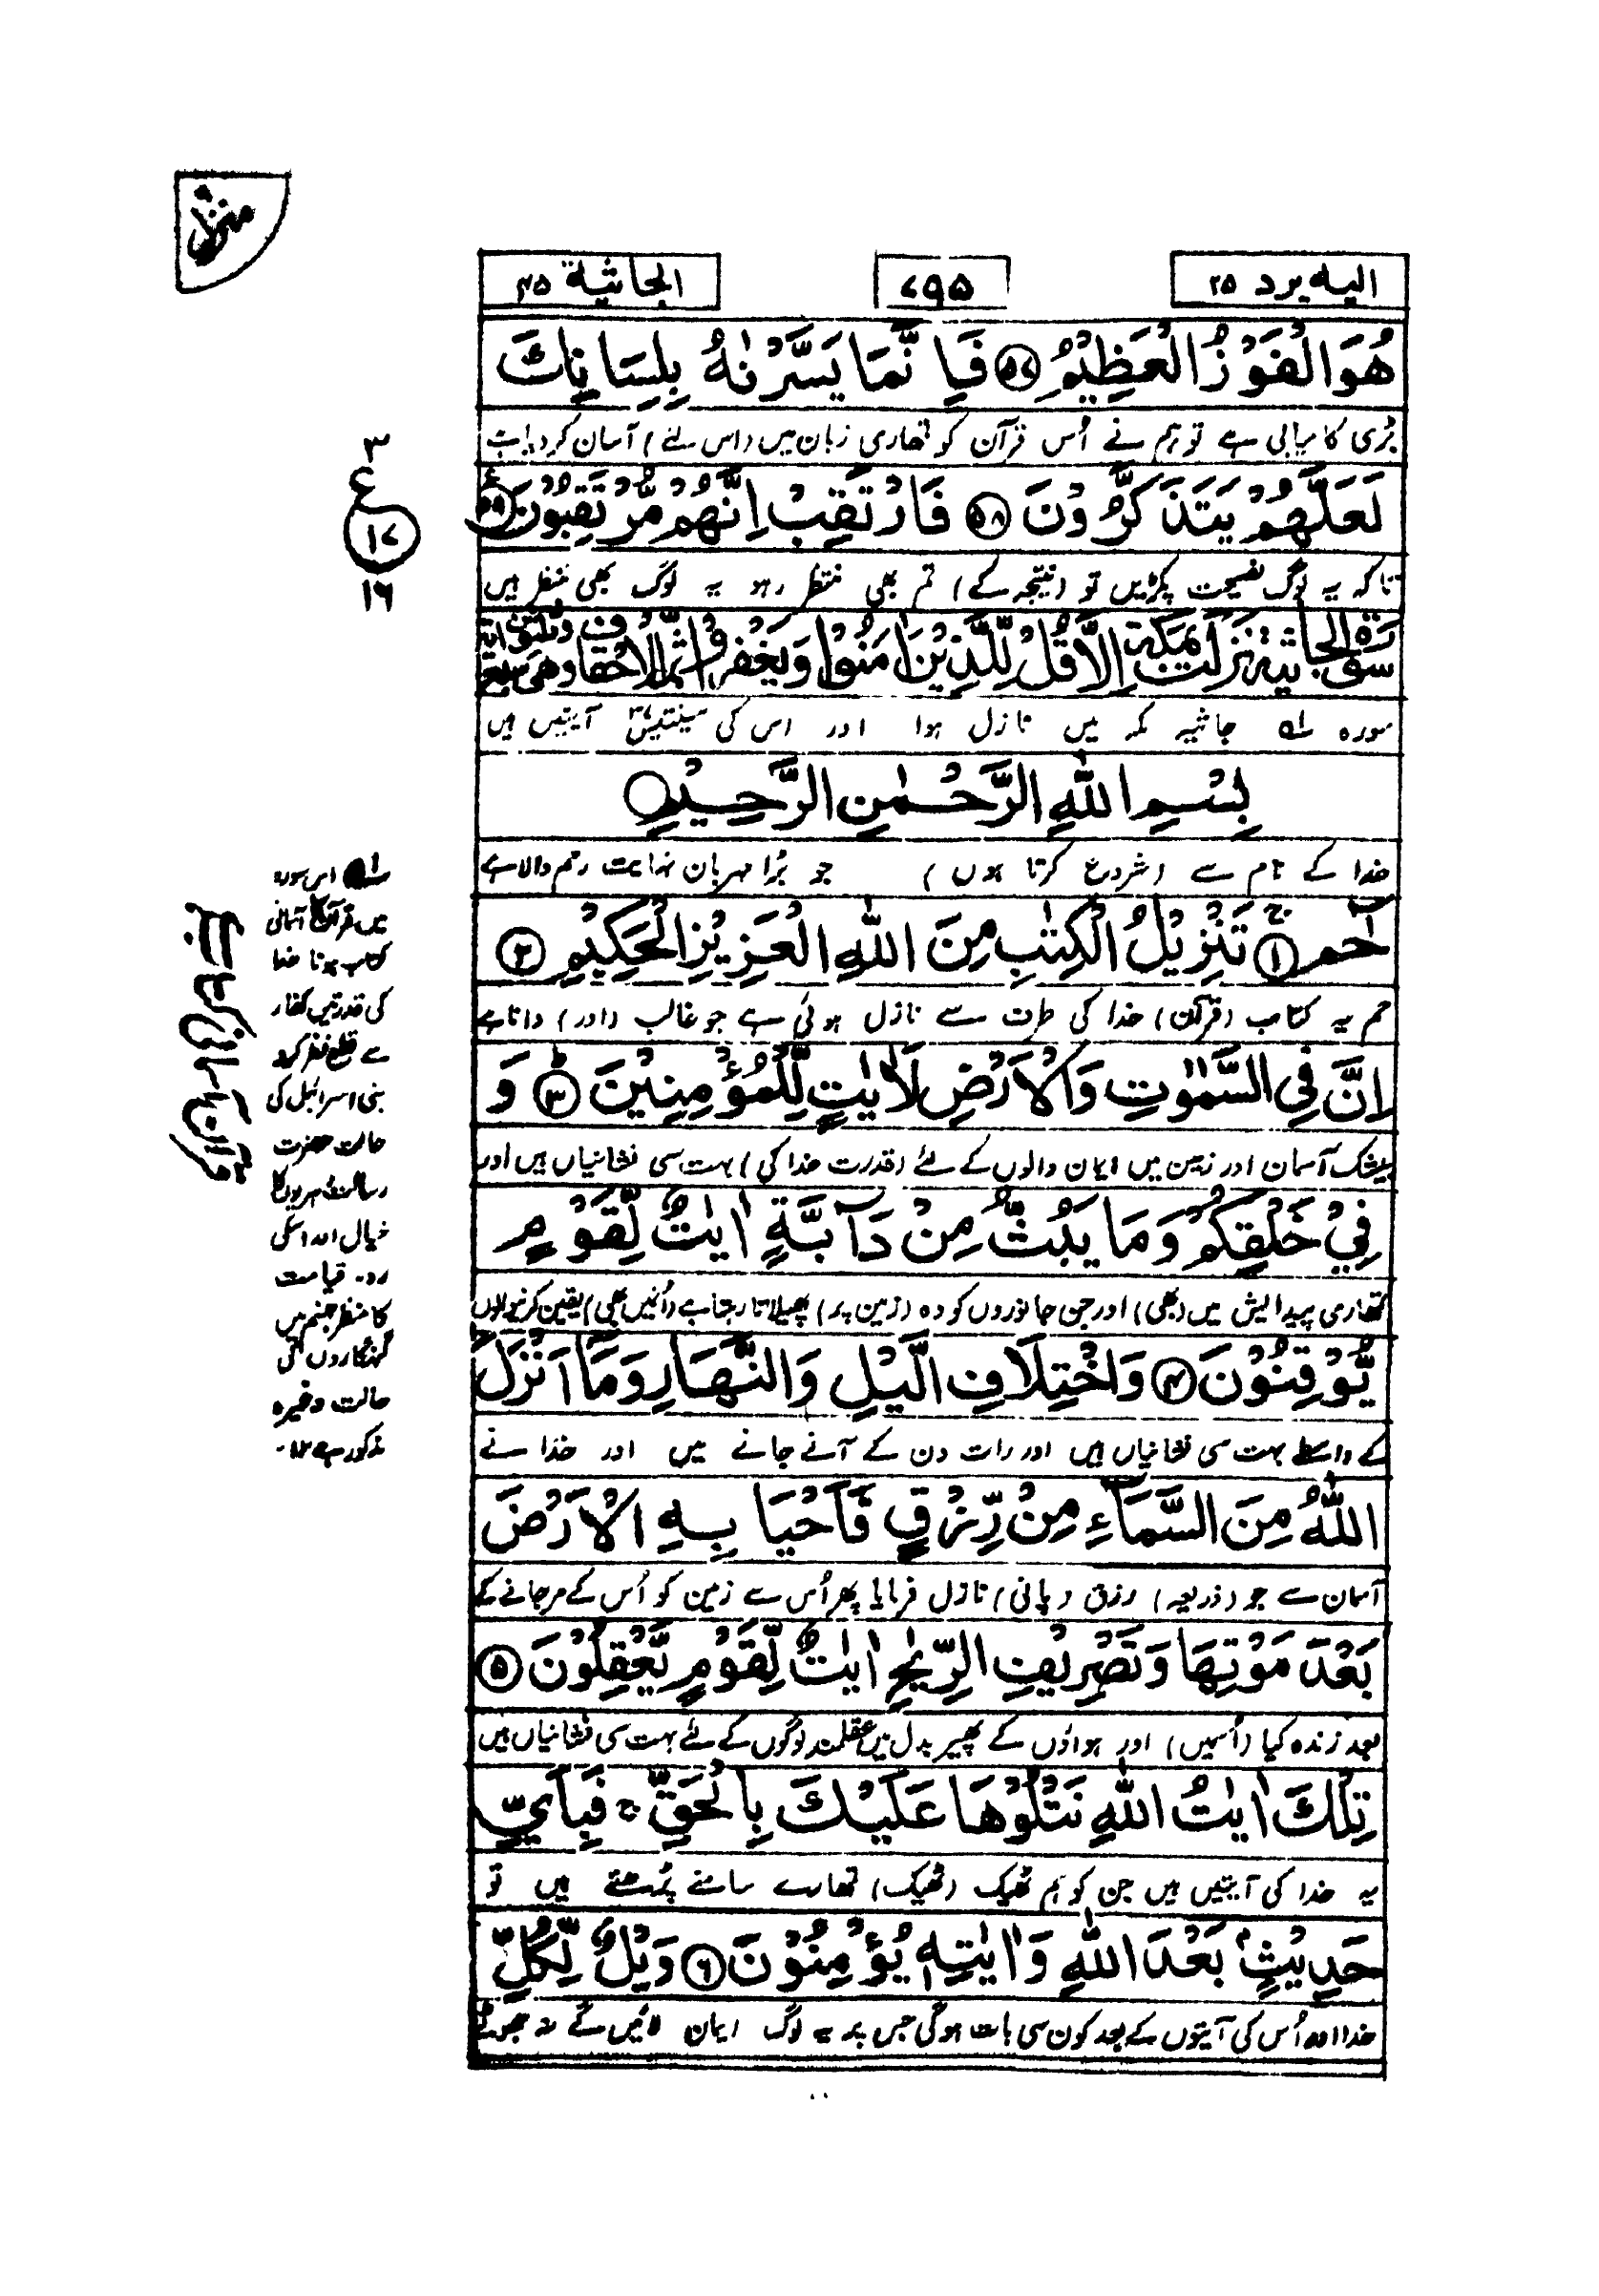 منزل
اليه يرد ٢٥
٧٩٥
الجاثية ٤٥
هُوَ الْفَوْزُ الْعَظِيْمُ ﴿٥٧﴾ فَاِنَّمَا يَسَّرْنٰهُ بِلِسَانِكَ
بڑی کامیابی ہے تو ہم نے اُس قرآن کو تمھاری زبان میں (اس لئے) آسان کر دیا ہے
لَعَلَّهُمْ يَتَذَكَّرُوْنَ ﴿٥٨﴾ فَارْتَقِبْ اِنَّهُمْ مُّرْتَقِبُوْنَ ﴿٥٩﴾
تاکہ یہ لوگ نصیحت پکڑیں تو (نتیجہ کے) تم بھی منتظر رہو یہ لوگ بھی منتظر ہیں
٣
ع
١٧
١٦
سورة الجاثية نزلت بمكة الا قُلْ لِّلَّذِيْنَ اٰمَنُوْا يَغْفِرُوْا
سورہ جاثیہ مکہ میں نازل ہوا اور اس کی سینتیس آیتیں ہیں
بِسْمِ اللّٰهِ الرَّحْمٰنِ الرَّحِيْمِ
خدا کے نام سے (شروع کرتا ہوں) جو بڑا مہربان نہایت رحم والا ہے
حٰمٓ ﴿١﴾ ج تَنْزِيْلُ الْكِتٰبِ مِنَ اللّٰهِ الْعَزِيْزِ الْحَكِيْمِ ﴿٢﴾
حم یہ کتاب (قرآن) خدا کی طرف سے نازل ہوئی ہے جو غالب (اور) دانا ہے
اِنَّ فِي السَّمٰوٰتِ وَالْاَرْضِ لَاٰيٰتٍ لِّلْمُؤْمِنِيْنَ ﴿٣﴾ؕ وَ
بیشک آسمان اور زمین میں ایمان والوں کے لئے (قدرت خدا کی) بہت سی نشانیاں ہیں اور
فِيْ خَلْقِكُمْ وَمَا يَبُثُّ مِنْ دَآبَّةٍ اٰيٰتٌ لِّقَوْمٍ
تمھاری پیدائش میں (بھی) اور جن جانوروں کو وہ (زمین پر) پھیلاتا رہتا ہے (اُنمیں بھی) یقین کرنیوالوں
يُّوْقِنُوْنَ ﴿٤﴾ وَاخْتِلَافِ الَّيْلِ وَالنَّهَارِ وَمَآ اَنْزَلَ
کے واسطے بہت سی نشانیاں ہیں اور رات دن کے آنے جانے میں اور خدا نے
اللّٰهُ مِنَ السَّمَآءِ مِنْ رِّزْقٍ فَاَحْيَا بِهِ الْاَرْضَ
آسمان سے جو (ذریعہ) رزق (پانی) نازل فرمایا پھر اُس سے زمین کو اُس کے مر جانے کے
بَعْدَ مَوْتِهَا وَتَصْرِيْفِ الرِّيٰحِ اٰيٰتٌ لِّقَوْمٍ يَّعْقِلُوْنَ ﴿٥﴾
بعد زندہ کیا (اُسمیں) اور ہواؤں کے پھیر بدل میں عقلمند لوگوں کے لئے بہت سی نشانیاں ہیں
تِلْكَ اٰيٰتُ اللّٰهِ نَتْلُوْهَا عَلَيْكَ بِالْحَقِّ ۚ فَبِاَيِّ
یہ خدا کی آیتیں ہیں جن کو ہم ٹھیک (ٹھیک) تمھارے سامنے پڑھتے ہیں تو
حَدِيْثٍۭ بَعْدَ اللّٰهِ وَاٰيٰتِهٖ يُؤْمِنُوْنَ ﴿٦﴾ وَيْلٌ لِّكُلِّ
خدا اور اُس کی آیتوں کے بعد کون سی بات ہوگی جس پر یہ لوگ ایمان لائیں گے ہر جھوٹے
اس سورہ
میں قرآن کا آسمانی
کتاب ہونا خدا
کی قدرتیں کفار
سے قطع نظر کرو
بنی اسرائیل کی
حالت حضرت
رسالت دہریوں کا
خیال اور اسکی
رد۔ قیامت
کا منظر جہنم میں
گنہگاروں کی
حالت وغیرہ
مذکور ہے ١٢۔
قرآن آسمانی کتاب ہے